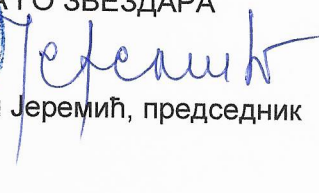 ГО ЗВЕЗДАРА
Јеремић
Јеремић, председник